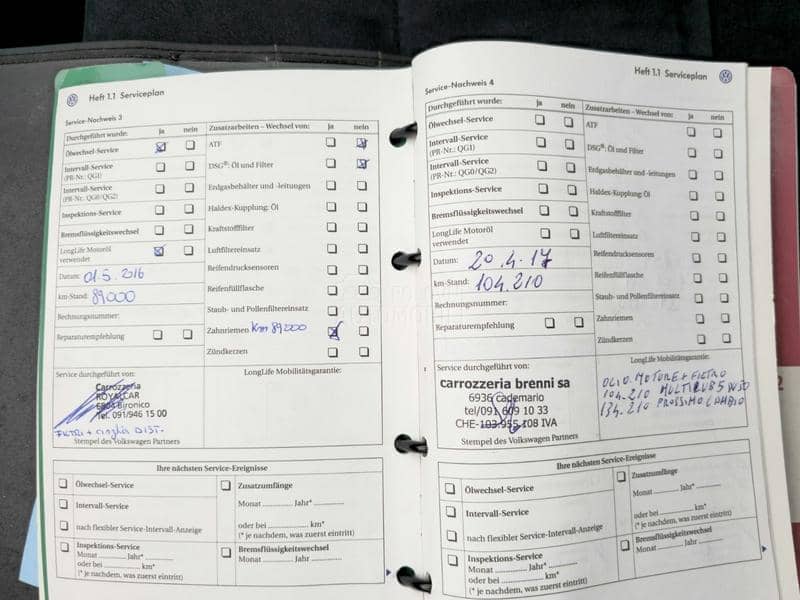 Heft 1.1 Serviceplan
Service-Nachweis 3
Durchgeführt wurde: ja nein
Ölwechsel-Service
Intervall-Service
(PR-Nr.: QG1)
Intervall-Service
(PR-Nr.: QG0/QG2)
Inspektions-Service
Bremsflüssigkeitswechsel
LongLife Motoröl
verwendet
Datum: 01.5.2016
km-Stand: 89000
Rechnungsnummer:
Reparaturempfehlung
Zusatzarbeiten – Wechsel von: ja nein
ATF
DSG®: Öl und Filter
Erdgasbehälter und -leitungen
Haldex-Kupplung: Öl
Kraftstofffilter
Luftfiltereinsatz
Reifendrucksensoren
Reifenfüllflasche
Staub- und Pollenfiltereinsatz
Zahnriemen Km 89000
Zündkerzen
Service durchgeführt von:
Carrozzeria
ROYALCAR
6804 Bironico
Tel. 091/946 15 00
FILTRI + cinghia DIST.
Stempel des Volkswagen Partners
LongLife Mobilitätsgarantie:
Ihre nächsten Service-Ereignisse
Ölwechsel-Service
Intervall-Service
nach flexibler Service-Intervall-Anzeige
Inspektions-Service
Monat Jahr*
oder bei km*
(* je nachdem, was zuerst eintritt)
Zusatzumfänge
Monat Jahr*
oder bei km*
(* je nachdem, was zuerst eintritt)
Bremsflüssigkeitswechsel
Monat Jahr
Heft 1.1 Serviceplan
Service-Nachweis 4
Durchgeführt wurde: ja nein
Ölwechsel-Service
Intervall-Service
(PR-Nr.: QG1)
Intervall-Service
(PR-Nr.: QG0/QG2)
Inspektions-Service
Bremsflüssigkeitswechsel
LongLife Motoröl
verwendet
Datum: 20.4.17
km-Stand: 104.210
Rechnungsnummer:
Reparaturempfehlung
Zusatzarbeiten – Wechsel von: ja nein
ATF
DSG®: Öl und Filter
Erdgasbehälter und -leitungen
Haldex-Kupplung: Öl
Kraftstofffilter
Luftfiltereinsatz
Reifendrucksensoren
Reifenfüllflasche
Staub- und Pollenfiltereinsatz
Zahnriemen
Zündkerzen
Service durchgeführt von:
carrozzeria brenni sa
6936 cademario
tel/091 609 10 33
CHE-103.955.108 IVA
Stempel des Volkswagen Partners
LongLife Mobilitätsgarantie:
OLIO MOTORE + FILTRO
104.210
134.210 PROSSIMO CAMBIO
Ihre nächsten Service-Ereignisse
Ölwechsel-Service
Intervall-Service
nach flexibler Service-Intervall-Anzeige
Inspektions-Service
Monat Jahr*
oder bei km*
(* je nachdem, was zuerst eintritt)
Zusatzumfänge
Monat Jahr*
oder bei km*
(* je nachdem, was zuerst eintritt)
Bremsflüssigkeitswechsel
Monat Jahr